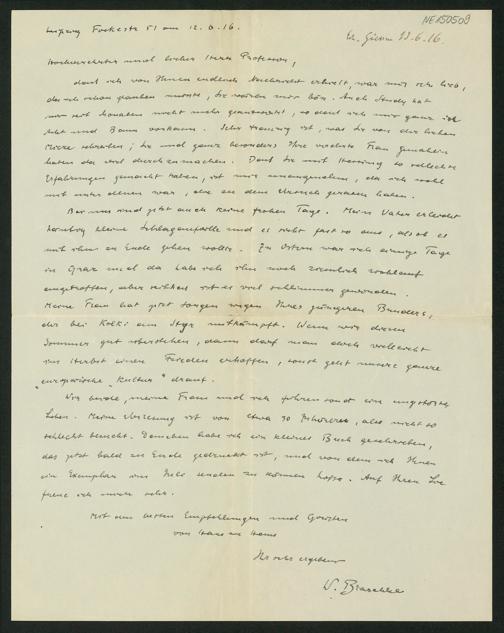 NE150509
Leipzig Fockestr 51 am 12.6.16.
Er. Giessen 13.6.16.
Hochverehrter und lieber Herr Professor,
dass ich von Ihnen endlich Nachricht erhielt, war mir sehr lieb,
da ich schon glauben musste, Sie wären mir bös. Auch Study hat
mir seit Monaten nicht mehr geantwortet, so dass ich mir ganz
und Bann vorkam. Sehr traurig ist, was Sie von der lieben
schreiben; Sie und ganz besonders Ihre verehrte Frau Gemahlin
haben da viel durchzumachen. Dass Sie mit so schlechte
Erfahrungen gemacht haben, ist mir unangenehm, da ich wohl
mit unter denen war, die zu dem Versuch geraten haben.
Bei uns sind jetzt auch keine frohen Tage. Mein Vater erleidet
kleine Schlaganfälle und es sieht fast so aus, als ob es
mit ihm zu Ende gehen wollte. Zu Ostern war ich einige Tage
in Graz und da habe ich ihn noch ziemlich wohlauf
angetroffen, aber seither ist es viel schlimmer geworden.
Meine Frau hat jetzt Sorgen wegen Ihres jüngeren Bruders,
der bei Kolki am Styr mitkämpft. Wenn wir diesen
Sommer gut überstehen, dann darf man doch vielleicht
im Herbst einen Frieden erhoffen, sonst geht unsere ganze
„europäische „Kultur" drauf.
Wir beide, meine Frau und ich führen sonst ein ungestörtes
Leben. Meine Vorlesung ist von etwa 30 Zuhörern, also nicht so
schlecht besucht. Daneben habe ich ein kleines Buch geschrieben,
das jetzt bald zu Ende gedruckt ist, und von dem ich Ihnen
ein Exemplar im Juli senden zu können hoffe. Auf Ihren
freue ich mich sehr.
Mit den besten Empfehlungen und Grüssen
von Haus zu Haus
Ihr sehr ergebener
W. Blaschke